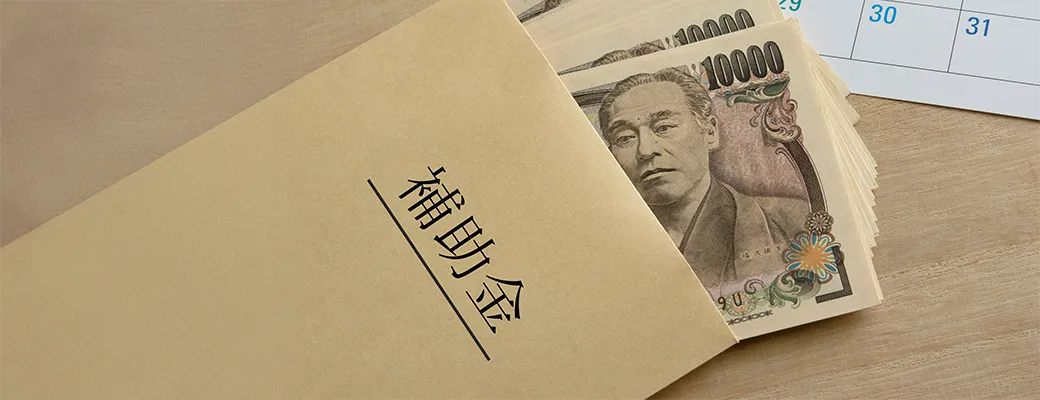 補助金
10000
10000
29
30
31
9U